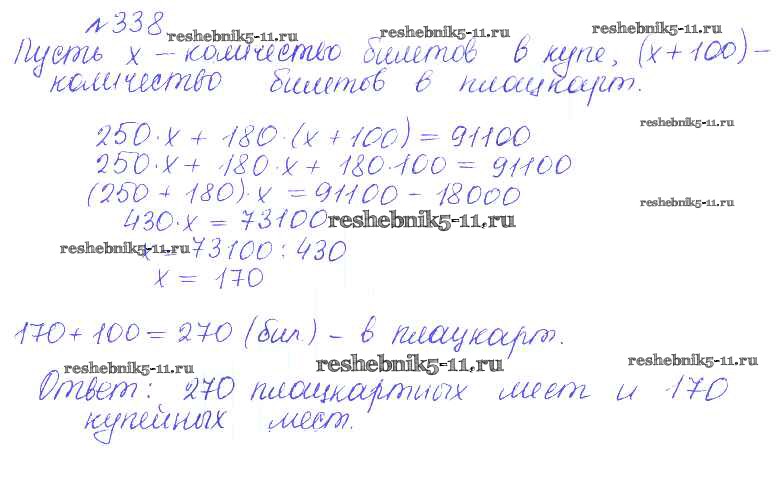 №338 reshebnik5-11.ru reshebnik5-11.ru reshebnik5-11.ru
Пусть x – количество билетов в купе, (x+100) –
количество билетов в плацкарт.
reshebnik5-11.ru
250·x + 180·(x+100) = 91100
250·x + 180·x + 180·100 = 91100
(250 + 180)·x = 91100 – 18000
reshebnik5-11.ru
430·x = 73100 reshebnik5-11.ru
reshebnik5-11.ru
x = 73100 : 430
x = 170
170 + 100 = 270 (бил.) – в плацкарт.
reshebnik5-11.ru reshebnik5-11.ru reshebnik5-11.ru
Ответ: 270 плацкартных мест и 170
купейных мест.